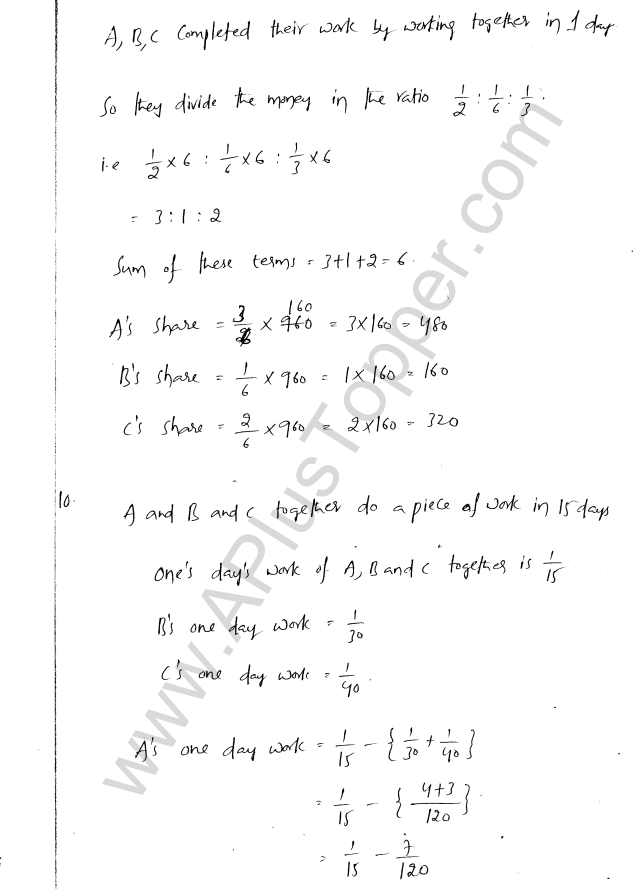 A, B, C Completed their work by working together in 1 day
So they divide the money in the ratio 1/2 : 1/6 : 1/3.
i.e 1/2 × 6 : 1/6 × 6 : 1/3 × 6
= 3 : 1 : 2
Sum of these terms = 3+1+2 = 6.
A's share = 3/6 × 960 160 = 3×160 = 480
B's share = 1/6 × 960 = 1 × 160 = 160
C's share = 2/6 × 960 = 2×160 = 320
10. A and B and C together do a piece of work in 15 days
One's day's work of A, B and C together is 1/15
B's one day work = 1/30
C's one day work = 1/40.
A's one day work = 1/15 - {1/30 + 1/40}
= 1/15 - {4+3/120}
= 1/15 - 7/120
www.APlusTopper.com